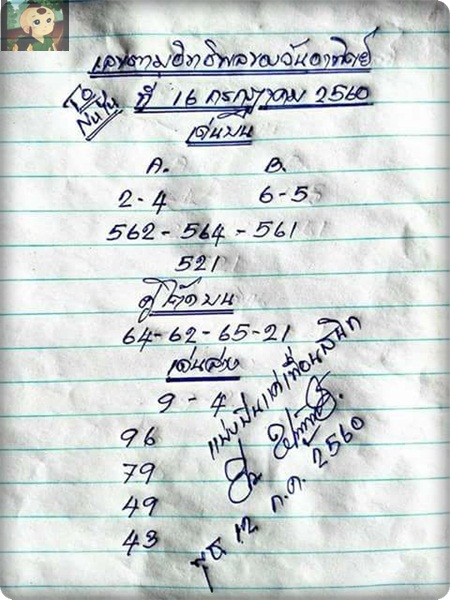 เลขตามอิทธิพลของวันอาทิตย์
ที่ 16 กรกฎาคม 2560
เด่นบน
A. B.
2-4 6-5
562-564-561
521
คู่โต๊ดบน
64-62-65-21
เด่นล่าง
9-4
96
79
49
43
แบ่งปันแด่เพื่อนสนิท
พุธ 12 ก.ค. 2560